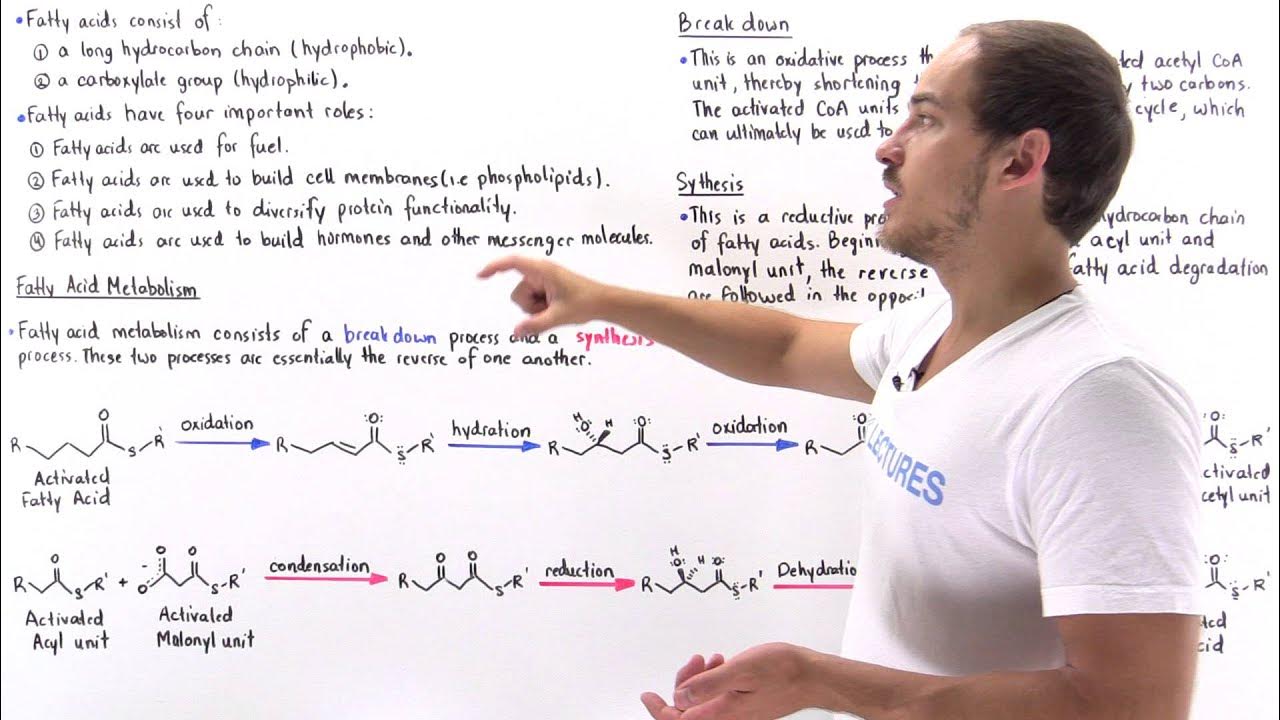 • Fatty acids consist of :
① a long hydrocarbon chain (hydrophobic).
② a carboxylate group (hydrophilic).
• Fatty acids have four important roles:
① Fatty acids are used for fuel.
② Fatty acids are used to build cell membranes (i.e phospholipids).
③ Fatty acids are used to diversify protein functionality.
④ Fatty acids are used to build hormones and other messenger molecules.
Fatty Acid Metabolism
• Fatty acid metabolism consists of a breakdown process and a synthesis
process. These two processes are essentially the reverse of one another.
Break down
• This is an oxidative process acetyl CoA
unit, thereby shortening two carbons.
The activated CoA units cycle, which
can ultimately be used to
Sythesis
• This is a reductive hydrocarbon chain
of fatty acids. acyl unit and
malonyl unit, the reverse fatty acid degradation
are followed in the
R O S R' oxidation R :O: S R' hydration R H :O: H :O: S R' oxidation R :O: S R'
Activated
Fatty Acid
LECTURES
R O S R' + - O O O S-R' condensation R O O S-R' reduction R H :O: H :O: S-R' Dehydration :O: S-R'
Activated
Acyl unit
Activated
Malonyl unit